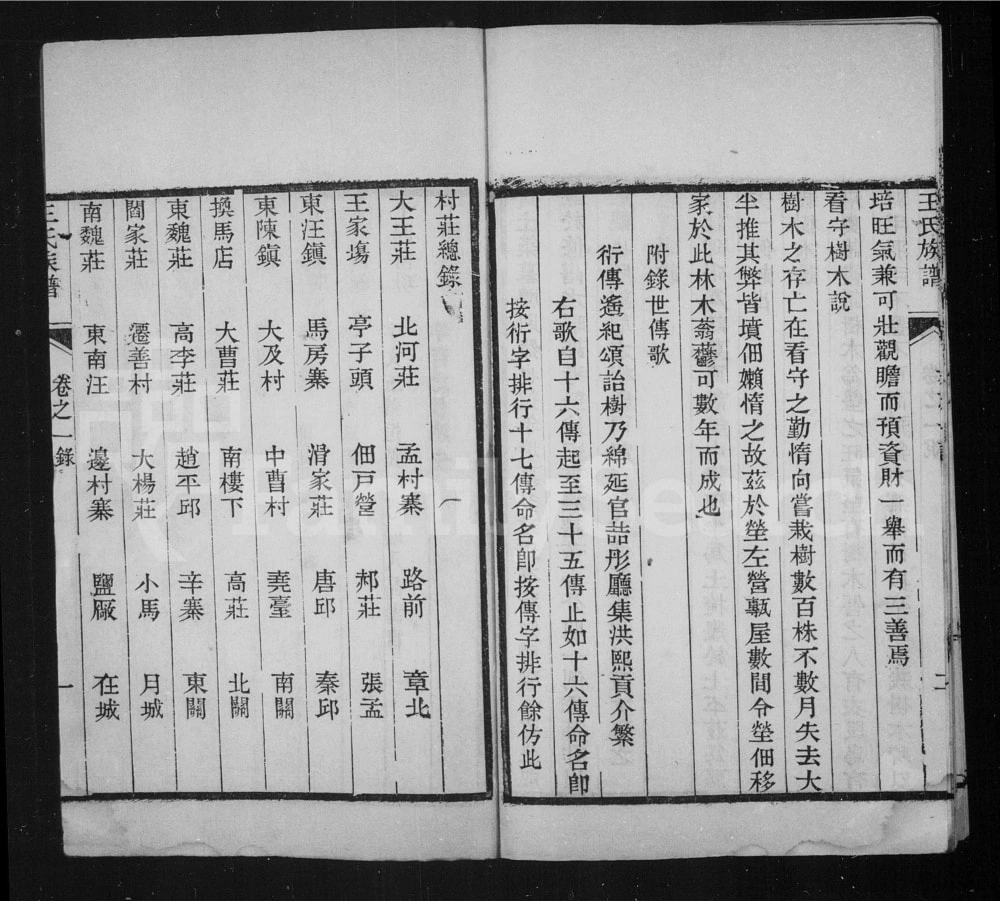 王氏族譜
二
培旺氣兼可壯觀瞻而預資財一舉而有三善焉
看守樹木說
樹木之存亡在看守之勤惰向嘗栽樹數百株不數月失去大
半推其弊皆墳佃嬾惰之故茲於塋左營甎屋數間令塋佃移
家於此林木蓊鬱可數年而成也
附錄世傳歌
衍傳遙紀頌詒樹乃綿延官喆彤廳集洪熙貢介繁
右歌自十六傳起至三十五傳止如十六傳命名卽
按衍字排行十七傳命名卽按傳字排行餘仿此
村莊總錄
大王莊 北河莊 孟村寨 路前 章北
王家塲 亭子頭 佃戸營 郝莊 張孟
東汪鎮 馬房寨 滑家莊 唐邱 秦邱
東陳鎮 大及村 中曹村 堯臺 南關
換馬店 大曹莊 南樓下 高莊 北關
東魏莊 高李莊 趙平邱 辛寨 東關
閻家莊 遷善村 大楊莊 小馬 月城
南魏莊 東南汪 邊村寨 鹽厰 在城
王氏族譜 卷之一錄 一